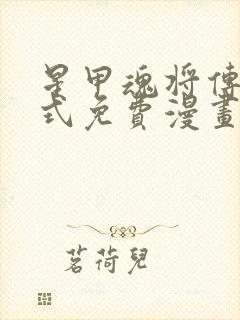 星甲魂将傳
式免費漫畫
茗荷兒